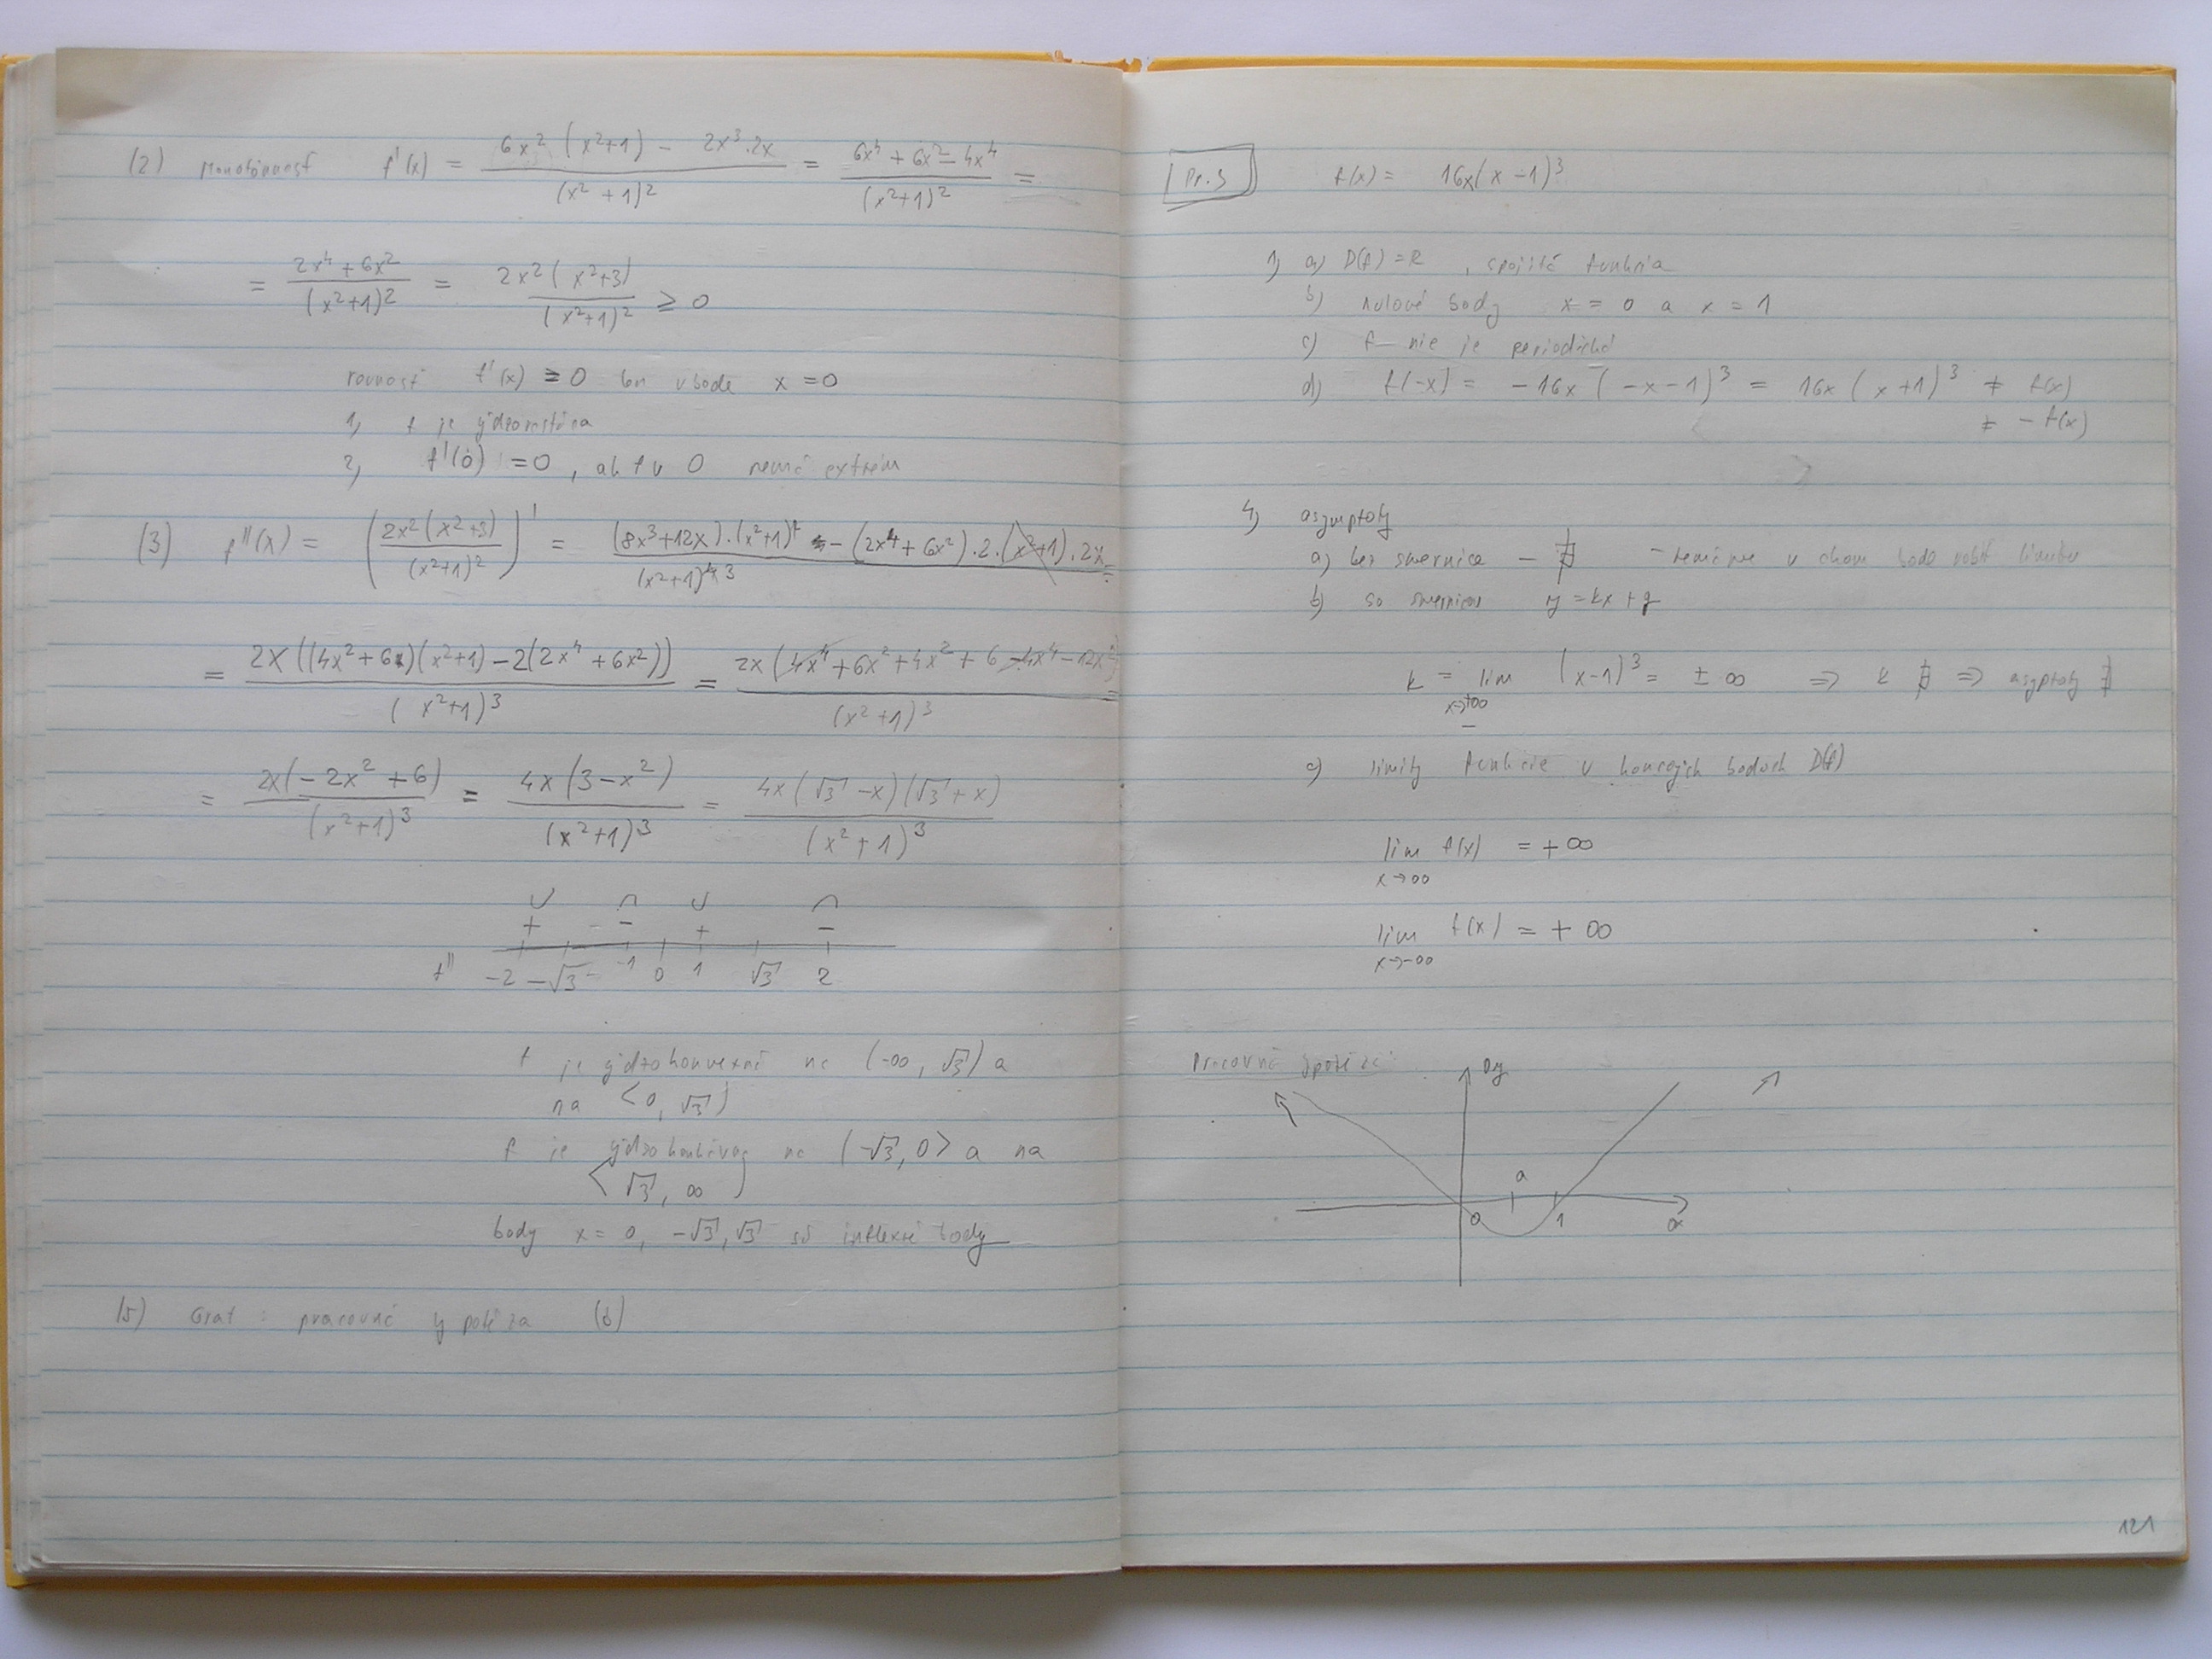 (2) Monotónnosť f'(x) = (6x²(x²+1) - 2x³.2x)/(x²+1)² = (6x⁴+6x²-4x⁴)/(x²+1)² =
= (2x⁴+6x²)/(x²+1)² = 2x²(x²+3)/(x²+1)² ≥ 0
rovnosť f'(x) = 0 len v bode x = 0
1, f je rýdzorastúca
2, f'(0) = 0, ale f v 0 nemá extrém
(3) f''(x) = (2x²(x²+3)/(x²+1)²)' = ((8x³+12x).(x²+1) - (2x⁴+6x²).2.(x²+1).2x)/(x²+1)³ =
= 2x((4x²+6)(x²+1)-2(2x⁴+6x²))/(x²+1)³ = 2x(4x⁴+6x²+4x²+6-4x⁴-12x²)/(x²+1)³ =
= 2x(-2x²+6)/(x²+1)³ = 4x(3-x²)/(x²+1)³ = 4x(√3-x)(√3+x)/(x²+1)³
∪ ∩ ∪ ∩
+ - + -
f'' -2 -√3 -1 0 1 √3 2
f je rýdzokonvexná na (-∞, √3) a
na <0, √3)
f je rýdzokonkávna na (-√3, 0> a na
<√3, ∞)
body x = 0, -√3, √3 sú inflexné body
(5) Graf : pracovná hypotéza (6)
Pr. 3 f(x) = 16x(x-1)³
1) a) D(f) = R, spojitá funkcia
b) nulové body x = 0 a x = 1
c) f nie je periodická
d) f(-x) = -16x(-x-1)³ = 16x(x+1)³ ≠ f(x)
≠ -f(x)
4) asymptoty
a) bez smernice - ∄ - nemáme v bode robiť limitu
b) so smernicou y = kx+q
k = lim x→±∞ (x-1)³ = ±∞ ⇒ k ∄ ⇒ asyptoty ∄
c) limity funkcie v bodoch D(f)
lim f(x) = +∞
x→∞
lim f(x) = +∞
x→-∞
Pracovná ypotéza:
oy
a
0 1 ox
121